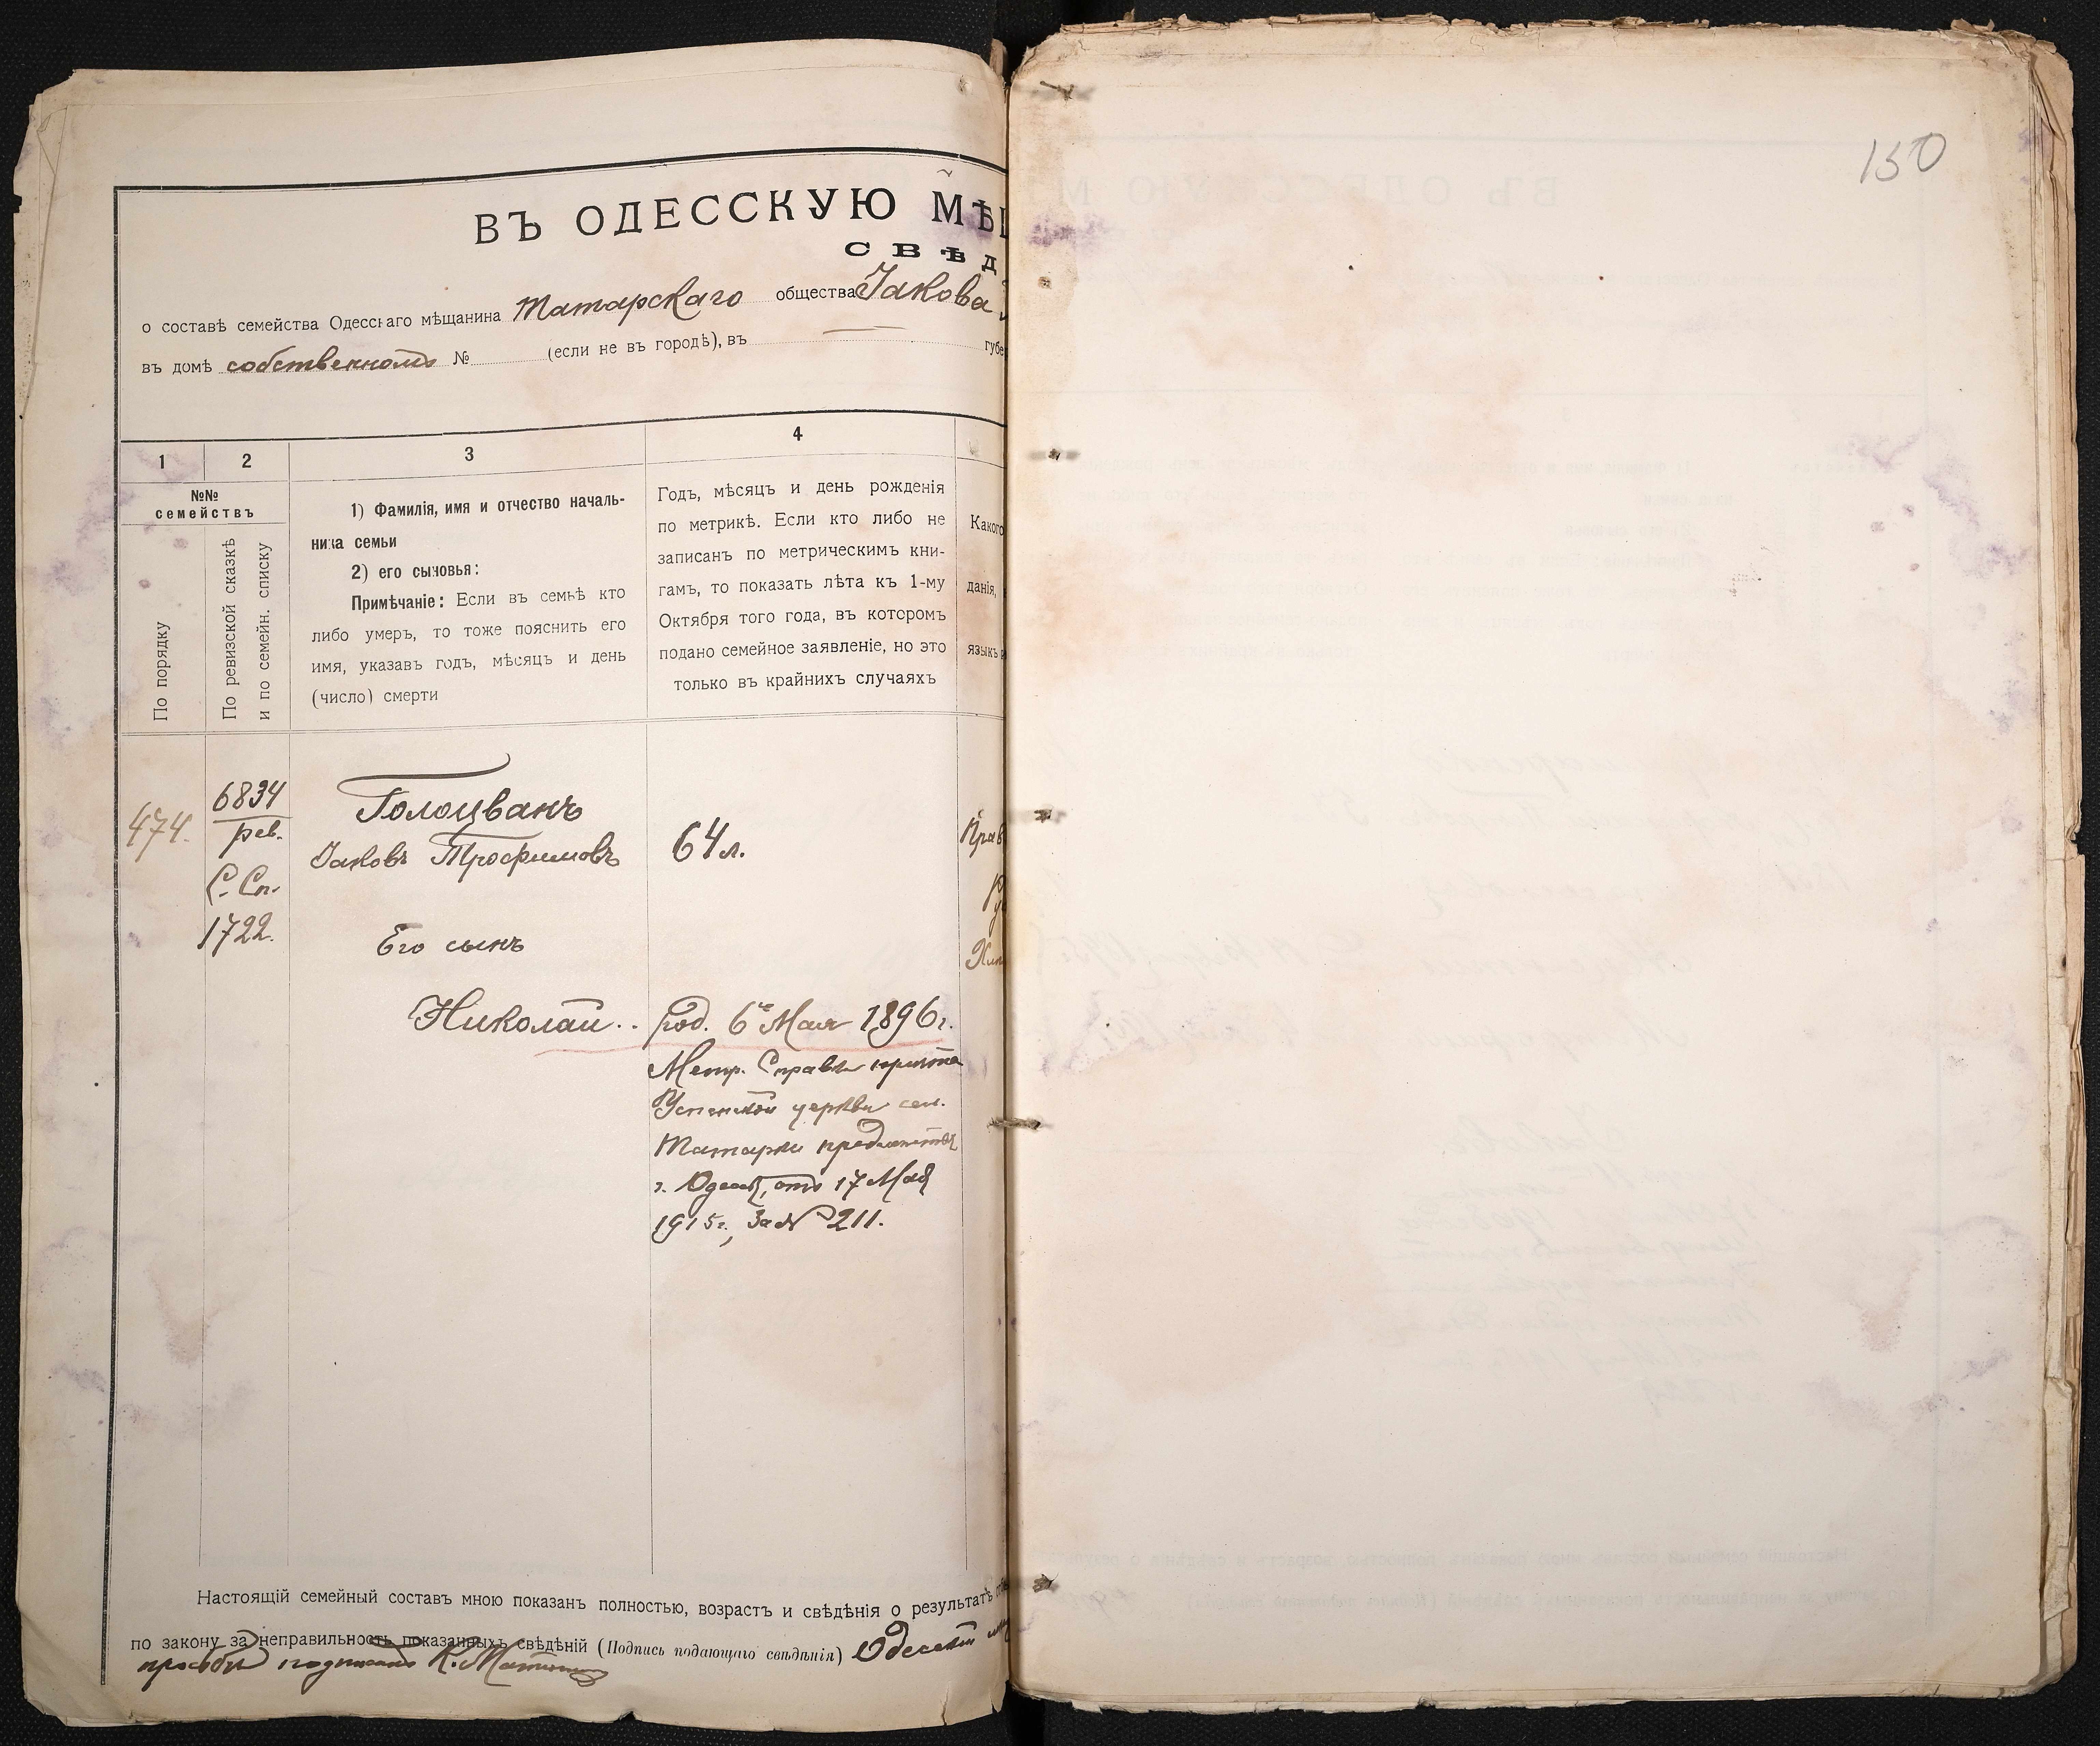 150
ВЪ ОДЕССКУЮ МѢЩ
СВѢД
о составѣ семейства Одесскаго мѣщанина Татарскаго общества Іакова
въ домѣ собственномъ № (если не въ городѣ), въ губе
1 2 3 4
№№
семействъ
По порядку
По ревизской сказкѣ
и по семейн. списку
1) Фамилія, имя и отчество началь-
ника семьи
2) его сыновья:
Примѣчаніе: Если въ семьѣ кто
либо умеръ, то тоже пояснить его
имя, указавъ годъ, мѣсяцъ и день
(число) смерти
Годъ, мѣсяцъ и день рожденія
по метрикѣ. Если кто либо не
записанъ по метрическимъ кни-
гамъ, то показать лѣта къ 1-му
Октября того года, въ которомъ
подано семейное заявленіе, но это
только въ крайнихъ случаяхъ
Какого
данія,
языкъ
474.
6834
рев.
С. Сп.
1722.
Голоцванъ
Іаковъ Трофимовъ
64 л.
Прав
Ру
Хл
Его сынъ
Николай.. род. 6го Мая 1896 г.
Метр. Справка причта
Успенской церкви сел.
Татарки предмѣстья
г. Одессы, отъ 17 Мая
1915 г., за № 211.
Настоящій семейный составъ мною показанъ полностью, возрастъ и свѣдѣнія о результатѣ
по закону за неправильность показанныхъ свѣдѣній (Подпись подающаго свѣдѣнія) Одесскій
просьбы подписалъ К.